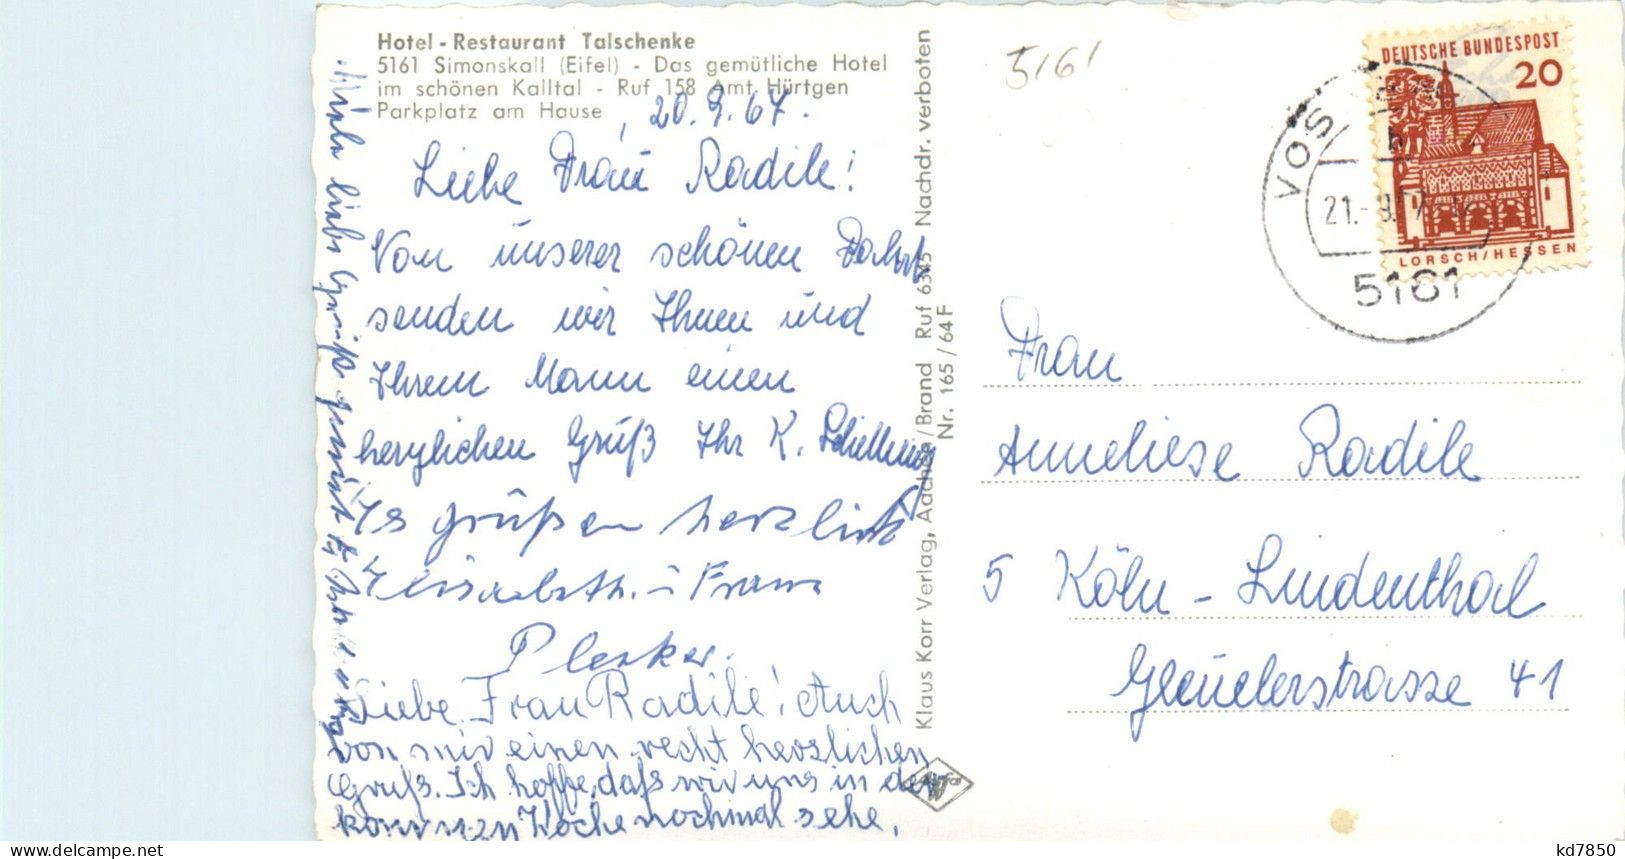 Hotel - Restaurant Talschenke
5161 Simonskall (Eifel) - Das gemütliche Hotel
im schönen Kalltal - Ruf 158 Amt Hürtgen
Parkplatz am Hause
20.9.67.
Liebe Frau Radile!
Von unserer schönen
senden wir Ihnen und
Ihrem Mann einen
herzlichen Gruß Ihr K.
Es grüßen herzlich
Elisabeth. u Franz
Liebe Frau Radile! Auch
von mir einen recht herzlichen
Gruß. Ich hoffe, daß wir uns in der
kommenden Woche nochmal sehe,
Viele liebe Grüße
Klaus Korr Verlag, Aachen/Brand Ruf 6345 Nachdr. verboten
Nr. 165/64 F
Agfa
5161
DEUTSCHE BUNDESPOST
20
LORSCH/HESSEN
VOSS
b
21.-9.
5161
Frau
Anneliese Radile
5 Köln - Lindenthal
Gleuelerstrasse 41
kd7850